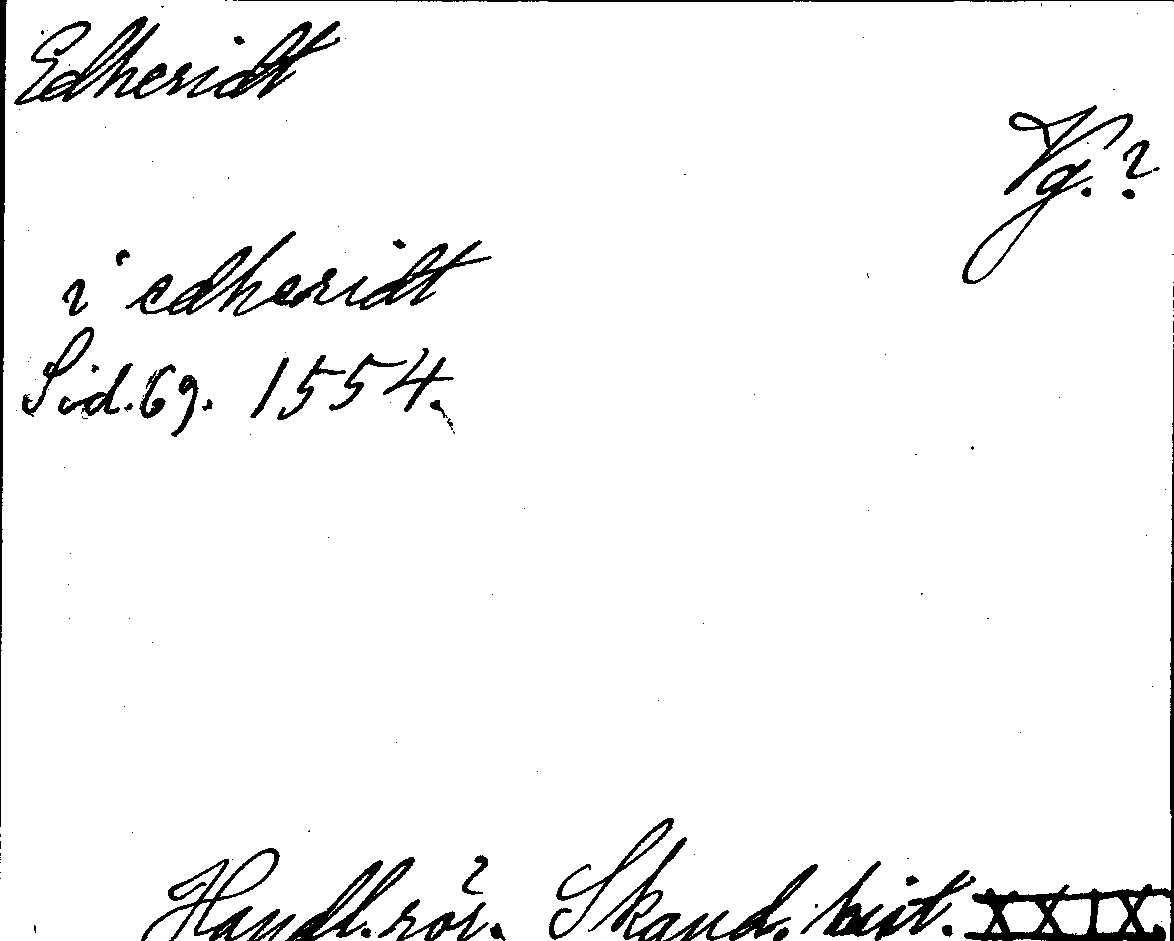 Edheridt
Vg.?
i edheridt
Sid. 69. 1554.
Handl. rör. Skand. hist. XXIX.